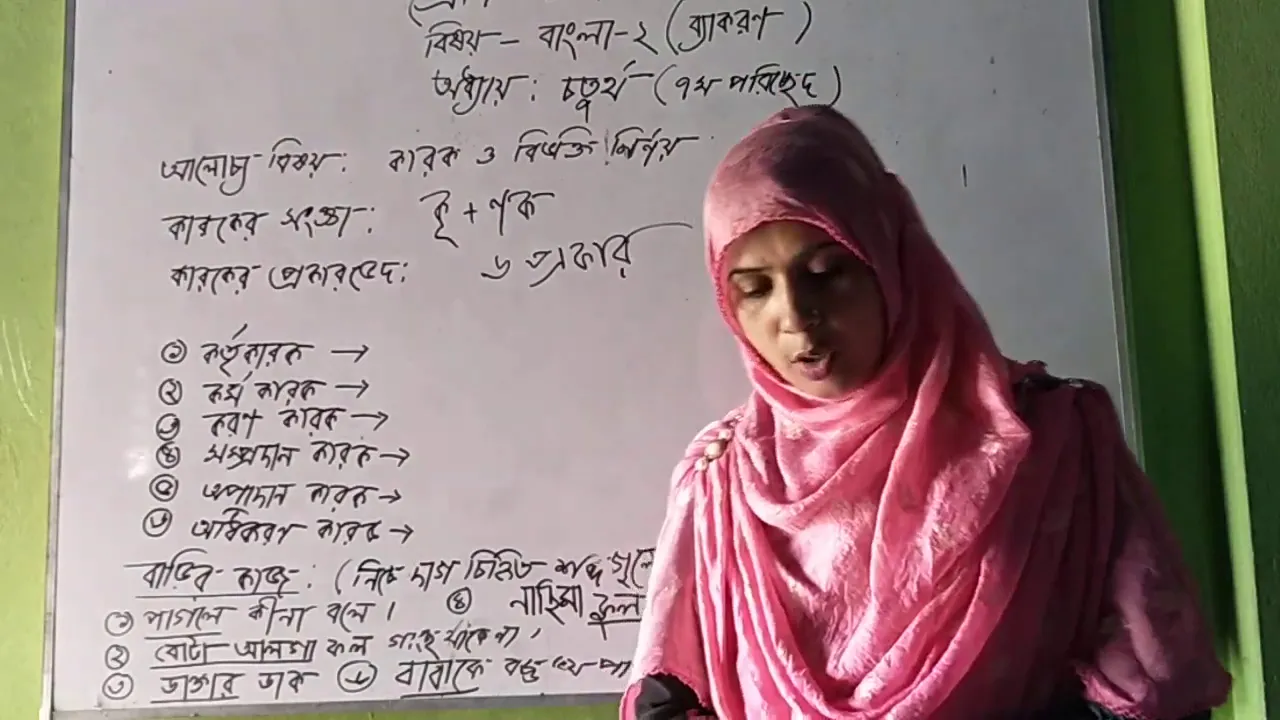 বিষয় – বাংলা-২ (ব্যাকরণ)
অধ্যায় : চতুর্থ (৭ম পরিচ্ছেদ)
আলোচ্য বিষয় : কারক ও বিভক্তি নির্ণয়
কারকের সংজ্ঞা : কৃ + ণক
কারকের প্রকারভেদ : ৬ প্রকার
১ কর্তৃকারক →
২ কর্ম কারক →
৩ করণ কারক →
৪ সম্প্রদান কারক →
৫ অপাদান কারক →
৬ অধিকরণ কারক →
বাড়ির কাজ : (নিচে দাগ চিহ্নিত শব্দ গুলো
১ পাগলে কীনা বলে। ৪ নাহিমা ফুল
২ বোটা আলগা ফল গাছে থাকে না,
৩ ডাক্তার ডাক ৬ বাবাকে